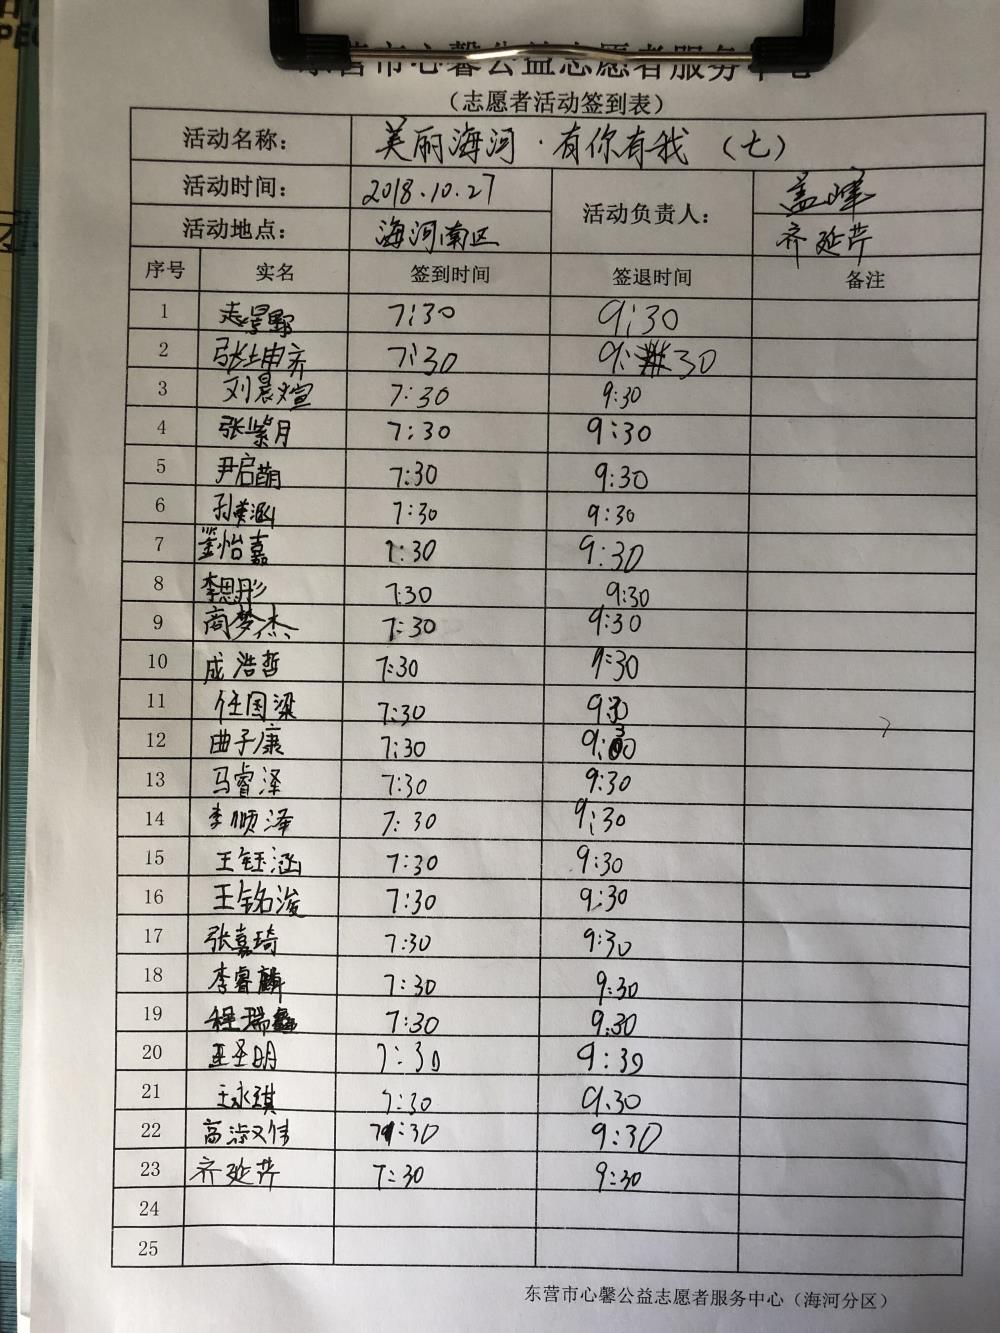 东营市心馨公益志愿者服务中心
（志愿者活动签到表）
活动名称： 美丽海河·有你有我（七）
活动时间： 2018.10.27 活动负责人： 盖峰
活动地点： 海河南区 齐延芹
序号 实名 签到时间 签退时间 备注
1 7:30 9:30
2 7:30 9:30
3 刘晨煊 7:30 9:30
4 张紫月 7:30 9:30
5 尹启萌 7:30 9:30
6 7:30 9:30
7 怡嘉 7:30 9:30
8 李思彤 7:30 9:30
9 商梦杰 7:30 9:30
10 成浩哲 7:30 9:30
11 任国梁 7:30 9:30
12 曲子康 7:30 9:30
13 马睿泽 7:30 9:30
14 李顺泽 7:30 9:30
15 王钰涵 7:30 9:30
16 王铭浚 7:30 9:30
17 张嘉琦 7:30 9:30
18 李睿麟 7:30 9:30
19 程瑞鑫 7:30 9:30
20 圣明 7:30 9:30
21 王永琪 7:30 9:30
22 高 7:30 9:30
23 齐延芹 7:30 9:30
24
25
东营市心馨公益志愿者服务中心（海河分区）